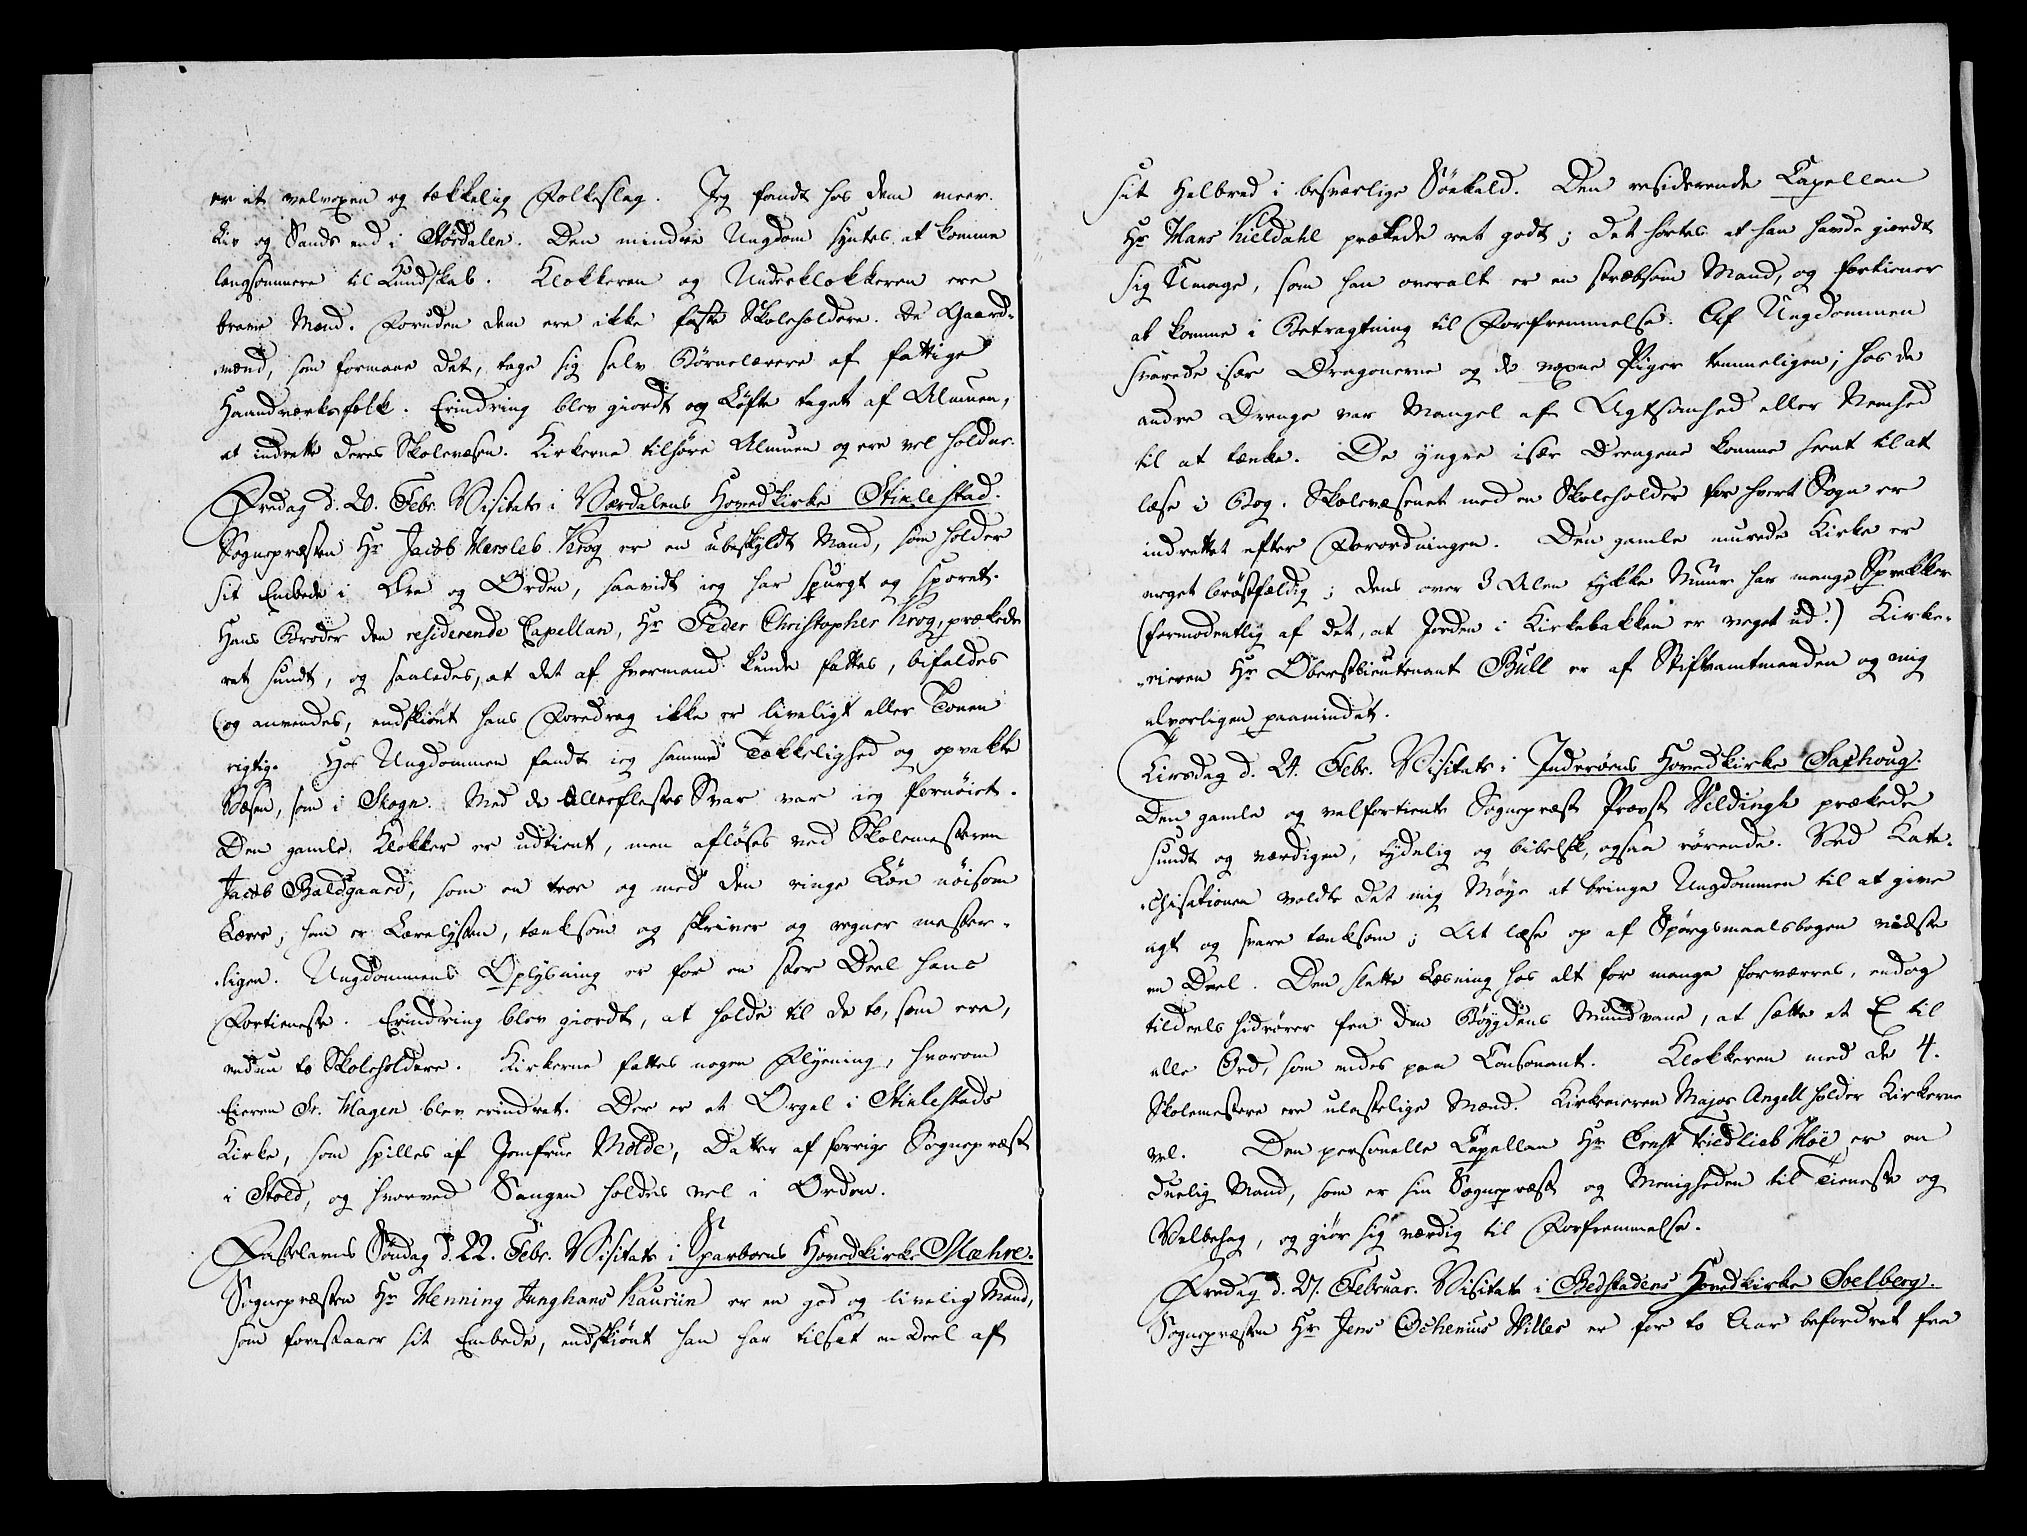 er et velvoxen og tækkelig Folkeslag. Jeg fandt hos dem meer
Liv og Sands end i Størdalen. Den mindre Ungdom syntes at komme
langsommere til Kundskab. Klokkeren og Underklokkeren ere
brave Mænd. Foruden dem ere ikke faste Skoleholdere. De Gaard-
mænd, som formaae det, tage sig selv Børnelærere af fattige
Haandværksfolk. Erindring blev giordt og Løfte taget af Almuen,
at indrette deres Skolevæsen. Kirkerne tilhøre Almuen og ere vel holdne.
Fredag d. 20. Febr. Visitats i Værdalens Hovedkirke Stiklestad.
Sognepræsten Hr Jacob Hersleb Krog er en ubeskyldt Mand, som holder
sit Embede i Ære og Orden, saavidt ieg har spurgt og sporet.
Hans Broder den residerende Capellan, Hr Peder Christopher Krog, prækede
ret sundt, og saaledes, at det af hvermand kunde fattes, bifaldes
og anvendes, endskiønt hans Foredrag ikke er liveligt eller Tonen
rigtig. Hos Ungdommen fandt ieg samme Tækkelighed og opvakte
Væsen, som i Skogn. Med de allerflestes Svar var ieg fornøiet.
Den gamle Klokker er udtient, men afløses ved Skolemesteren
Jacob Baldgaard, som en troe og med den ringe Løn nøisom
Lærer, han er Lærelysten, tænksom og skriver og regner mester-
ligen. Ungdommens Oplysning er for en stor Deel hans
Fortieneste. Erindring blev giordt, at holde til de to, som ere,
endnu to Skoleholdere. Kirkerne fattes nogen Flyening, hvorom
Eieren Sr. Hagen blev erindret. Der er et Orgel i Stiklestads
Kirke, som spilles af Jomfrue Molde, Datter af forrige Sognepræst
i Stod, og hvorved Sangen holdes vel i Orden.
Fastelavns Søndag d. 22. Febr. Visitats i Sparboens Hovedkirke Mæhre.
Sognepræsten Hr Henning Junghans Kaurin er en god og livelig Mand,
som forestaaer sit Embede, endskiønt han har tilsat en Deel af
sit Helbred i besværlige Søekald. Den residerende Capellan
Hr Hans Kieldahl prækede ret godt; det hørtes at han havde giordt
sig Umage, som han overalt er en stræbsom Mand, og fortiener
at komme i Betragtning til Forfremmelse. Af Ungdommen
svarede især Dragonerne og de voxne Piger temmeligen; hos de
andre Drenge var Mangel af Agtsomhed eller Nemhed
til at tænke. De yngre især Drengene komme seent til at
læse i Bog. Skolevæsenet med en Skoleholder for hvert Sogn er
indrettet efter Forordningen. Den gamle murede Kirke er
meget brøstfældig; dens over 3 Alen tykke Muur har mange Sprekker
(formodentlig af det, at Jorden i Kirkebakken er veget ud.) Kirke-
eieren Hr Oberstlieutenant Bull er af Stiftamtmanden og mig
alvorligen paamindet.
Tirsdag d. 24. Febr. Visitats i Inderøens Hovedkirke Saxhoug.
Den gamle og velfortiente Sognepræst Provst Weldingh prækede
sundt og værdigen, tydelig og bibelsk, ogsaa rørende. Ved Kate-
chisationen voldte det mig Møye at bringe Ungdommen til at give
agt og svare tænksom; At læse op af Spørgsmaalsbogen vidste
en Deel. Den slette Læsning hos alt for mange forværres, endog
tildeels hidrører fra den Bøygdens Mundvane, at sætte et E til
alle Ord, som endes paa Consonant. Klokkeren med de 4.
Skolemestere ere ulastelige Mænd. Kirkeeieren Major Angell holder Kirkerne
vel. Den personelle Capellan Hr Ernst Friedlieb Høe er en
duelig Mand, som er sin Sognepræst og Menigheden til Tieneste og
Velbehag, og giør sig værdig til Forfremmelse.
Fredag d. 27. Februar. Visitats i Bedstadens Hovedkirke Solberg.
Sognepræsten Hr Jens Ochenius Wille er for to Aar befordret fra